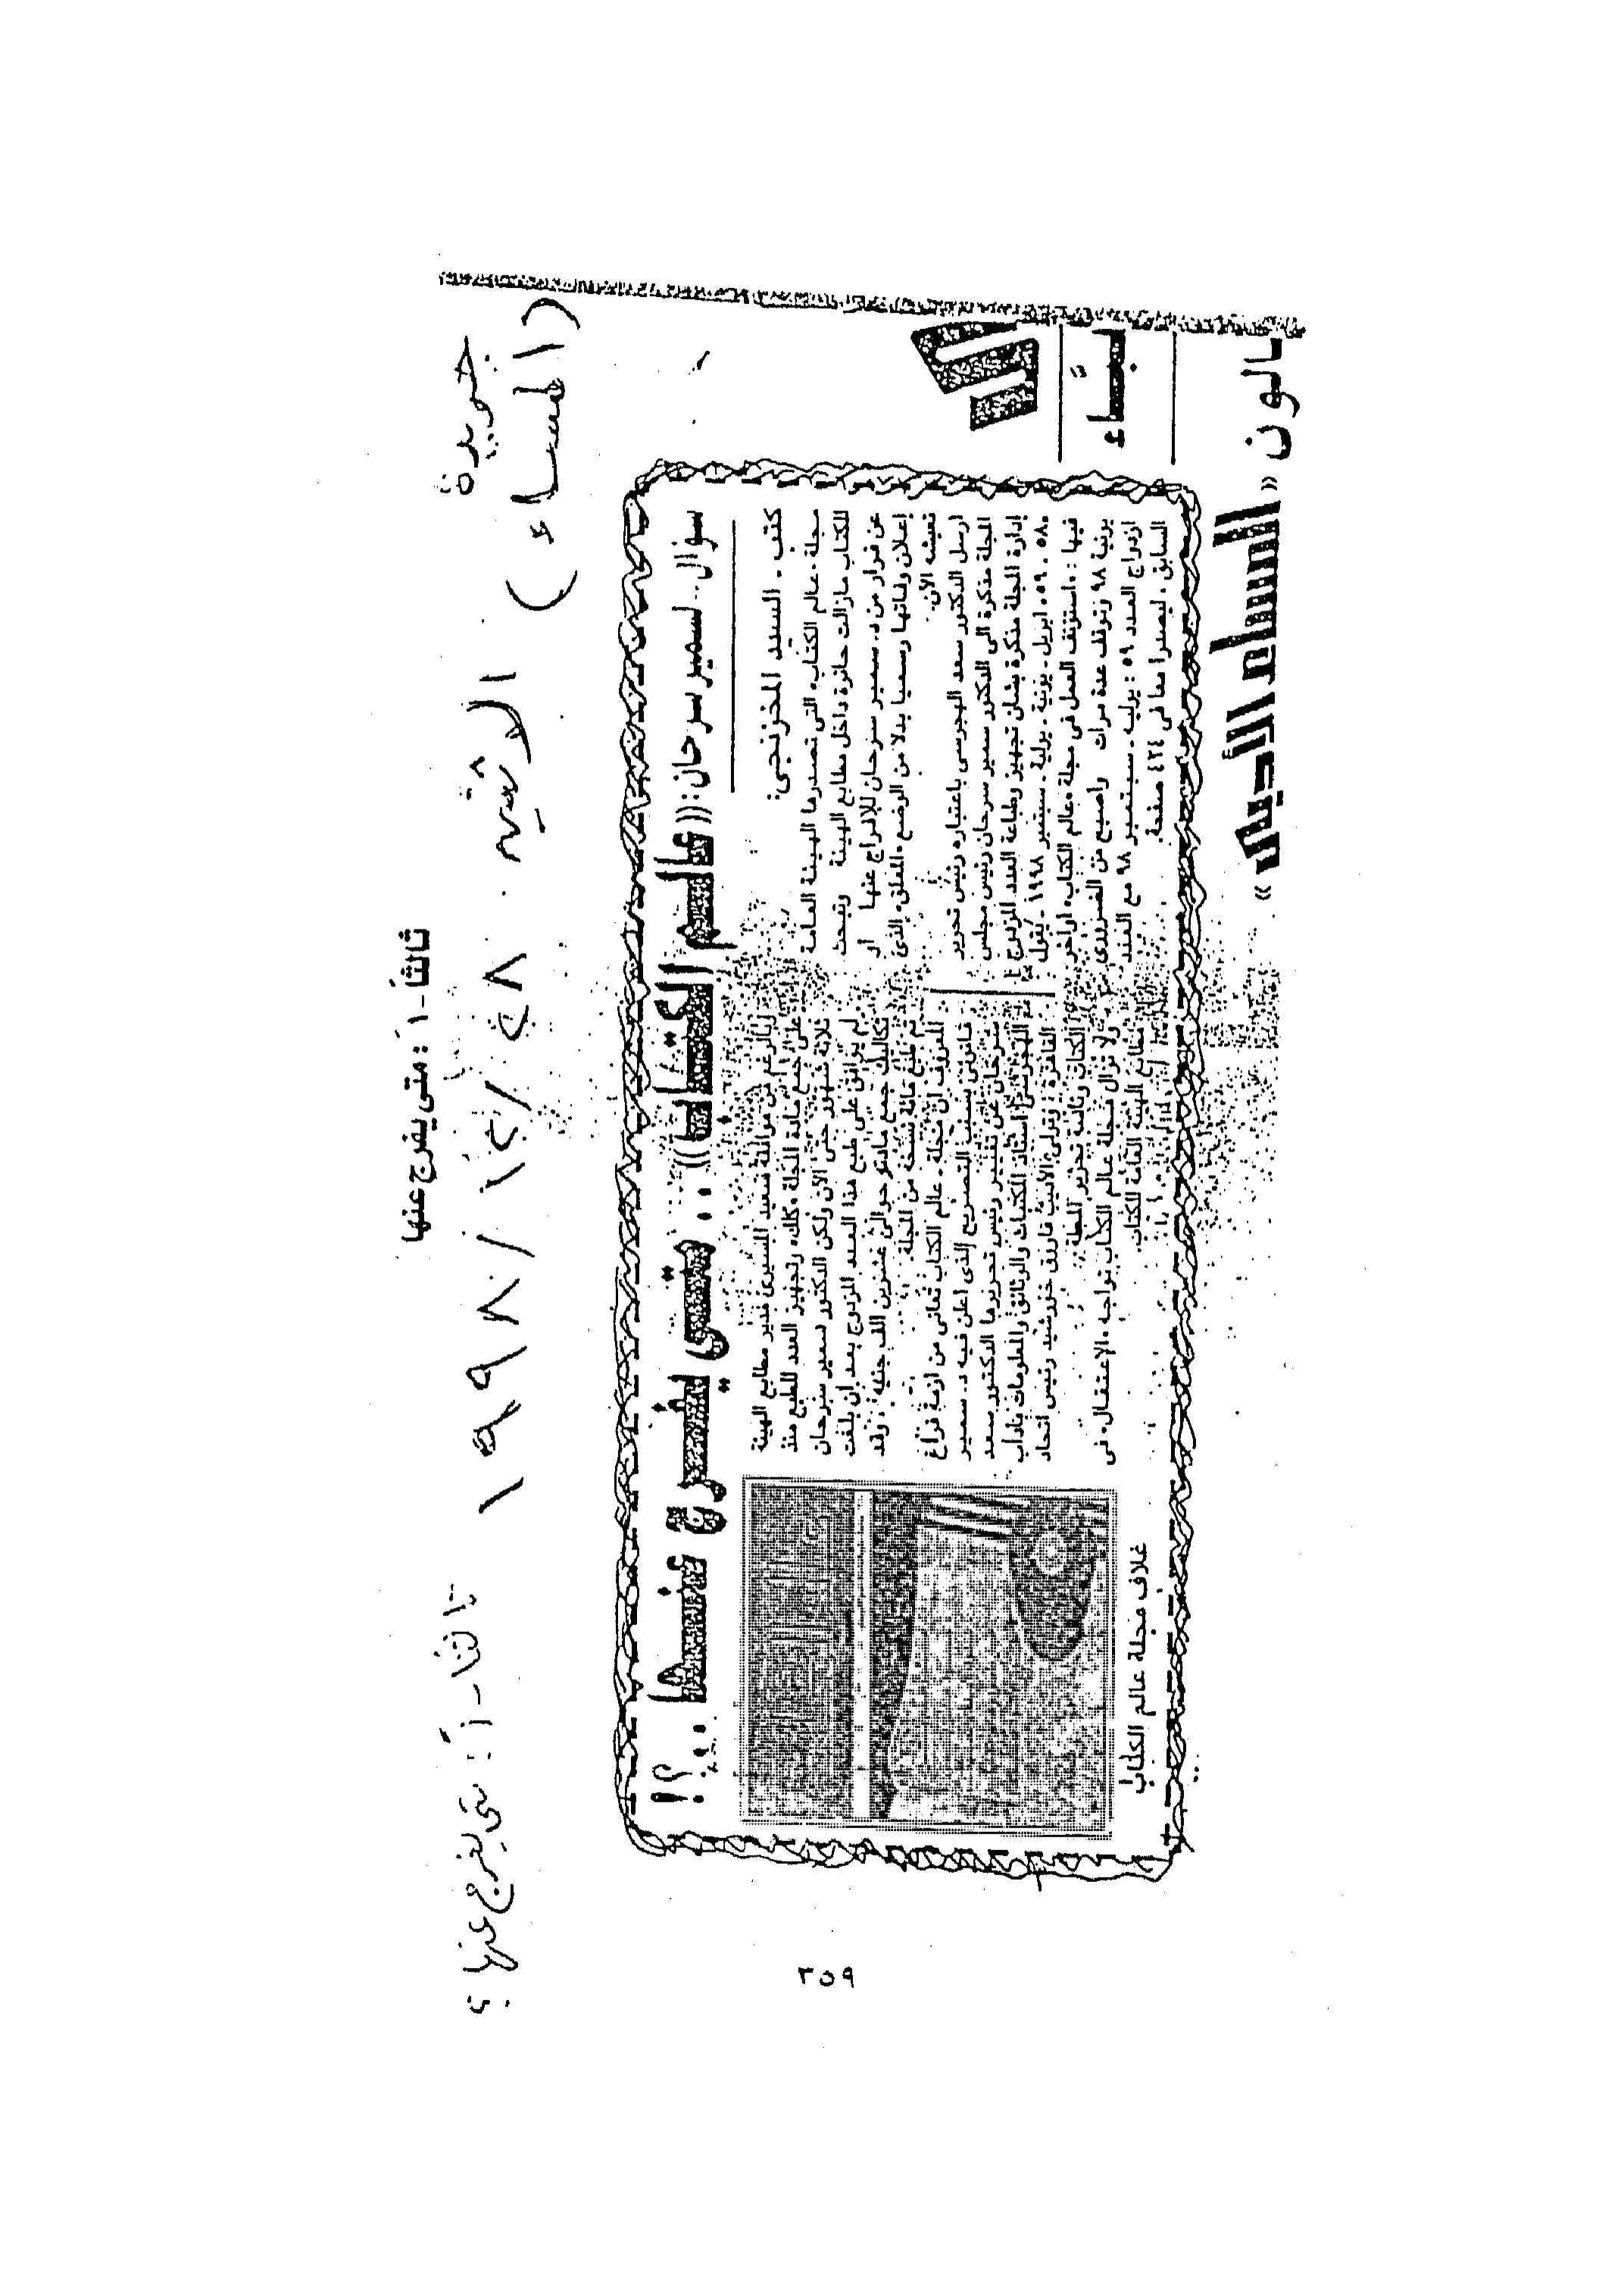 ثالثاً - أ : متى يفرج عنها
جريدة
(المساء)
الاثنين ٢٨/١٢/١٩٩٨
ثالثا - أ : متى يفرج عنها ؟
سؤال.. لسمير سرحان:
((عالم الكتاب)).. متى يفرج عنها..؟!
كتب - السيد المخزنجى:
مجلة «عالم الكتاب» التى تصدرها الهيئة العامة
للكتاب مازالت حائرة داخل مطابع الهيئة وتبحث
عن قرار من د. سمير سرحان للإفراج عنها أو
إعلان وفاتها رسميا بدلا من الوضع «المغلق» الذى
تعيشه الآن.
أرسل الدكتور سعد الهجرسى باعتباره رئيس تحرير
المجلة مذكرة الى الدكتور سمير سرحان رئيس مجلس
إدارة المجلة مذكرة بشان تجهيز وطباعة العدد المزدوج
٥٨ - ٥٩ ابريل - يونية - يولية - سبتمبر ١٩٩٨ - يقول
فيها : «استؤنف العمل فى مجلة «عالم الكتاب» أواخر
يونية ٩٨ وتوقف عدة مرات وأصبح من الضرورى
ازدواج العدد ٥٩ : يوليه - سبتمبر ٩٨ مع العدد
السابق، ليصدرا معا فى ٤٢٤ صفحة.
وبالرغم من موافقة سعيد المسيرى مدير مطابع الهيئة
على جمع مادة المجلة «كلك» وتجهيز العدد للطبع منذ
ثلاثة شهور حتى الآن ولكن الدكتور سمير سرحان
لم يوافق على طبع هذا العدد المزدوج بعد أن بلغت
تكاليف جمع مادته حوالى عشرين الف جنيه، وقد
تم طبع مائة نسخة من المجلة
المعروف ان مجلة «عالم الكتاب تعانى من أزمة فراغ
قانونى بسبب التصريح الذى أعلن فيه د. سمير
سرحان عن تغيير رئيس تحريرها الدكتور سعد
الهجرسى استاذ المكتبات والوثائق والمعلومات بآداب
القاهرة وتولى الأديب فاروق خورشيد رئيس اتحاد
الكتاب رئاسة تحرير المجلة
ولا تزال مجلة عالم الكتاب تواجه «الاعتقال» فى
مطابع الهيئة العامة للكتاب.
غلاف مجلة عالم الكتاب
«السلام الأدبى»
٢٥٩